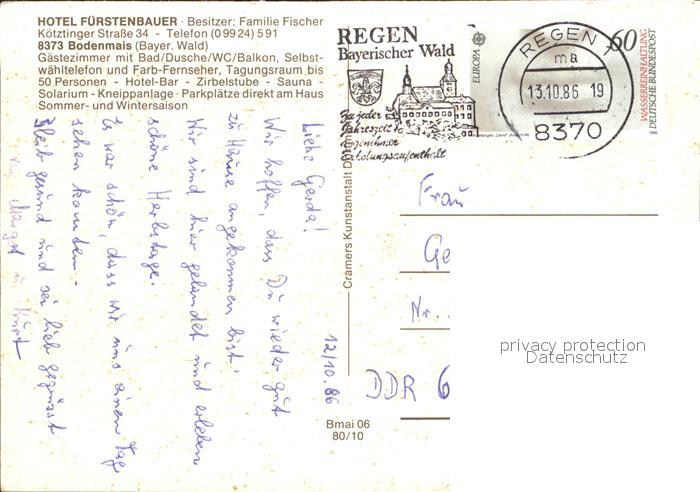 HOTEL FÜRSTENBAUER · Besitzer: Familie Fischer
Kötztinger Straße 34 - Telefon (0 99 24) 5 91
8373 Bodenmais (Bayer. Wald)
Gästezimmer mit Bad/Dusche/WC/Balkon, Selbst-
wähltelefon und Farb-Fernseher, Tagungsraum bis
50 Personen - Hotel-Bar - Zirbelstube - Sauna -
Solarium - Kneippanlage · Parkplätze direkt am Haus
Sommer- und Wintersaison
REGEN
Bayerischer Wald
Zu jeder
Jahreszeit
angenehmer
Erholungsaufenthalt
EUROPA
REGEN
ma
13.10.86 19
8370
60
WASSERREINHALTUNG
DEUTSCHE BUNDESPOST
Cramers Kunstanstalt
12/10.86
Liebe Gerda!
Wir hoffen, dass Du wieder gut
zu Hause angekommen bist.
Wir sind hier gelandet und erleben
schöne Herbsttage.
Es war schön, dass wir uns einen Tag
sehen konnten. -
Bleib gesund und sei lieb gegrüsst
von Margot u. Kurt
Frau
Ge
Nr.
DDR 6
Bmai 06
80/10
privacy protection
Datenschutz